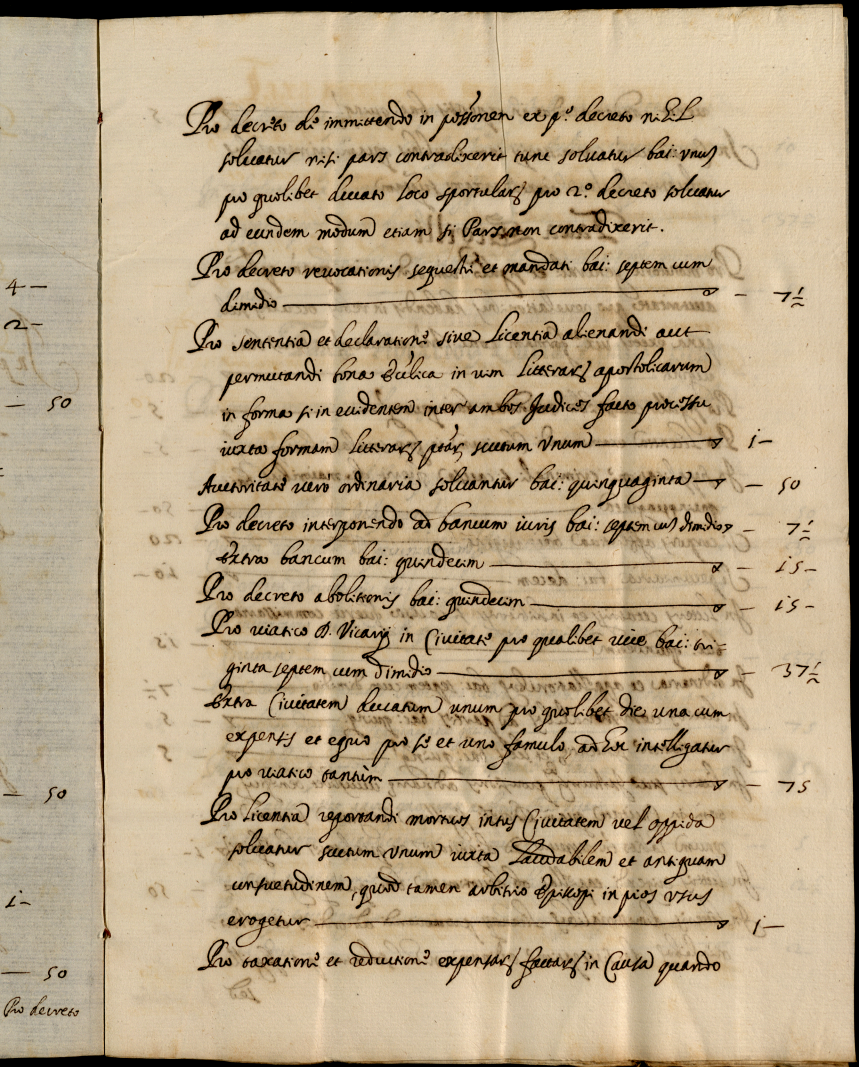 4 —
2 —
— 50
— 50
i —
— 50
Pro decreto
Pro decreto de immittendo in possonem ex p.o decreto
soluatur nisi pars contradixerit tunc soluatur bai: vnus
pro quolibet ducato loco sportular pro 2.o decreto soluatur
ad eundem modum etiam si Pars non contradixerit.
Pro decreto reuocationis sequestri et mandati bai: septem cum
dimidio — 7½
Pro sententia et declaratione siue Licentia alienandi aut
permutandi bona in uim Litterar apostolicarum
in forma si in euidentem inter ambos Judices facto processu
iuxta formam Litterar ptar scutum vnum — i —
Auctoritate uero ordinaria soluantur bai: quinquaginta — 50
Pro decreto interponendo ad bancum iuris bai: septem cum dimidio — 7½
Extra bancum bai: quindecim — i5 —
Pro decreto abolitionis bai: quindecim — i5 —
Pro uiatico D. Vicarij in Ciuitate pro qualibet uice bai: tri=
ginta septem cum dimidio — 37½
Extra Ciuitatem ducatum unum pro quolibet die una cum
expensis et equo pro se et uno famulo, intelligatur
pro uiatico tantum — 75
Pro Licentia reportandi mortuos intus Ciuitatem uel oppida
soluatur scutum vnum iuxta Laudabilem et antiquam
consuetudinem, quod tamen arbitrio Episcopi in pios vsus
erogetur — i —
Pro taxatione et reductione expensar factar in Causa quando